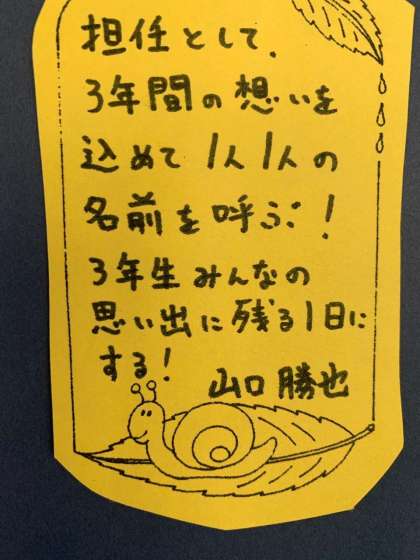 担任として、
3年間の想いを
込めて1人1人の
名前を呼ぶ！
3年生みんなの
思い出に残る1日に
する！
山口勝也